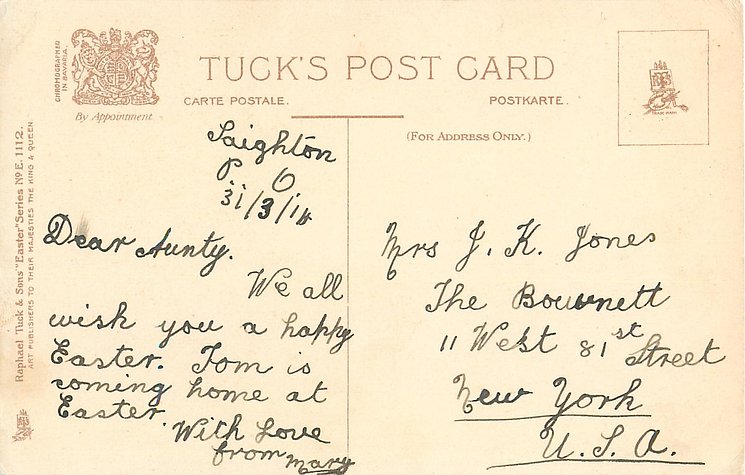 CHROMOGRAPHED
IN BAVARIA
By Appointment
TUCK'S POST CARD
CARTE POSTALE.
POSTKARTE.
(FOR ADDRESS ONLY.)
TRADE MARK
Raphael Tuck & Sons' "Easter" Series No E. 1112.
ART PUBLISHERS TO THEIR MAJESTIES THE KING & QUEEN.
Saighton
P O
31/3/14
Dear Aunty.
We all
wish you a happy
Easter. Tom is
coming home at
Easter.
With Love
from Mary
Mrs J. K. Jones
The Bournett
11 West 81st Street
New York
U.S.A.